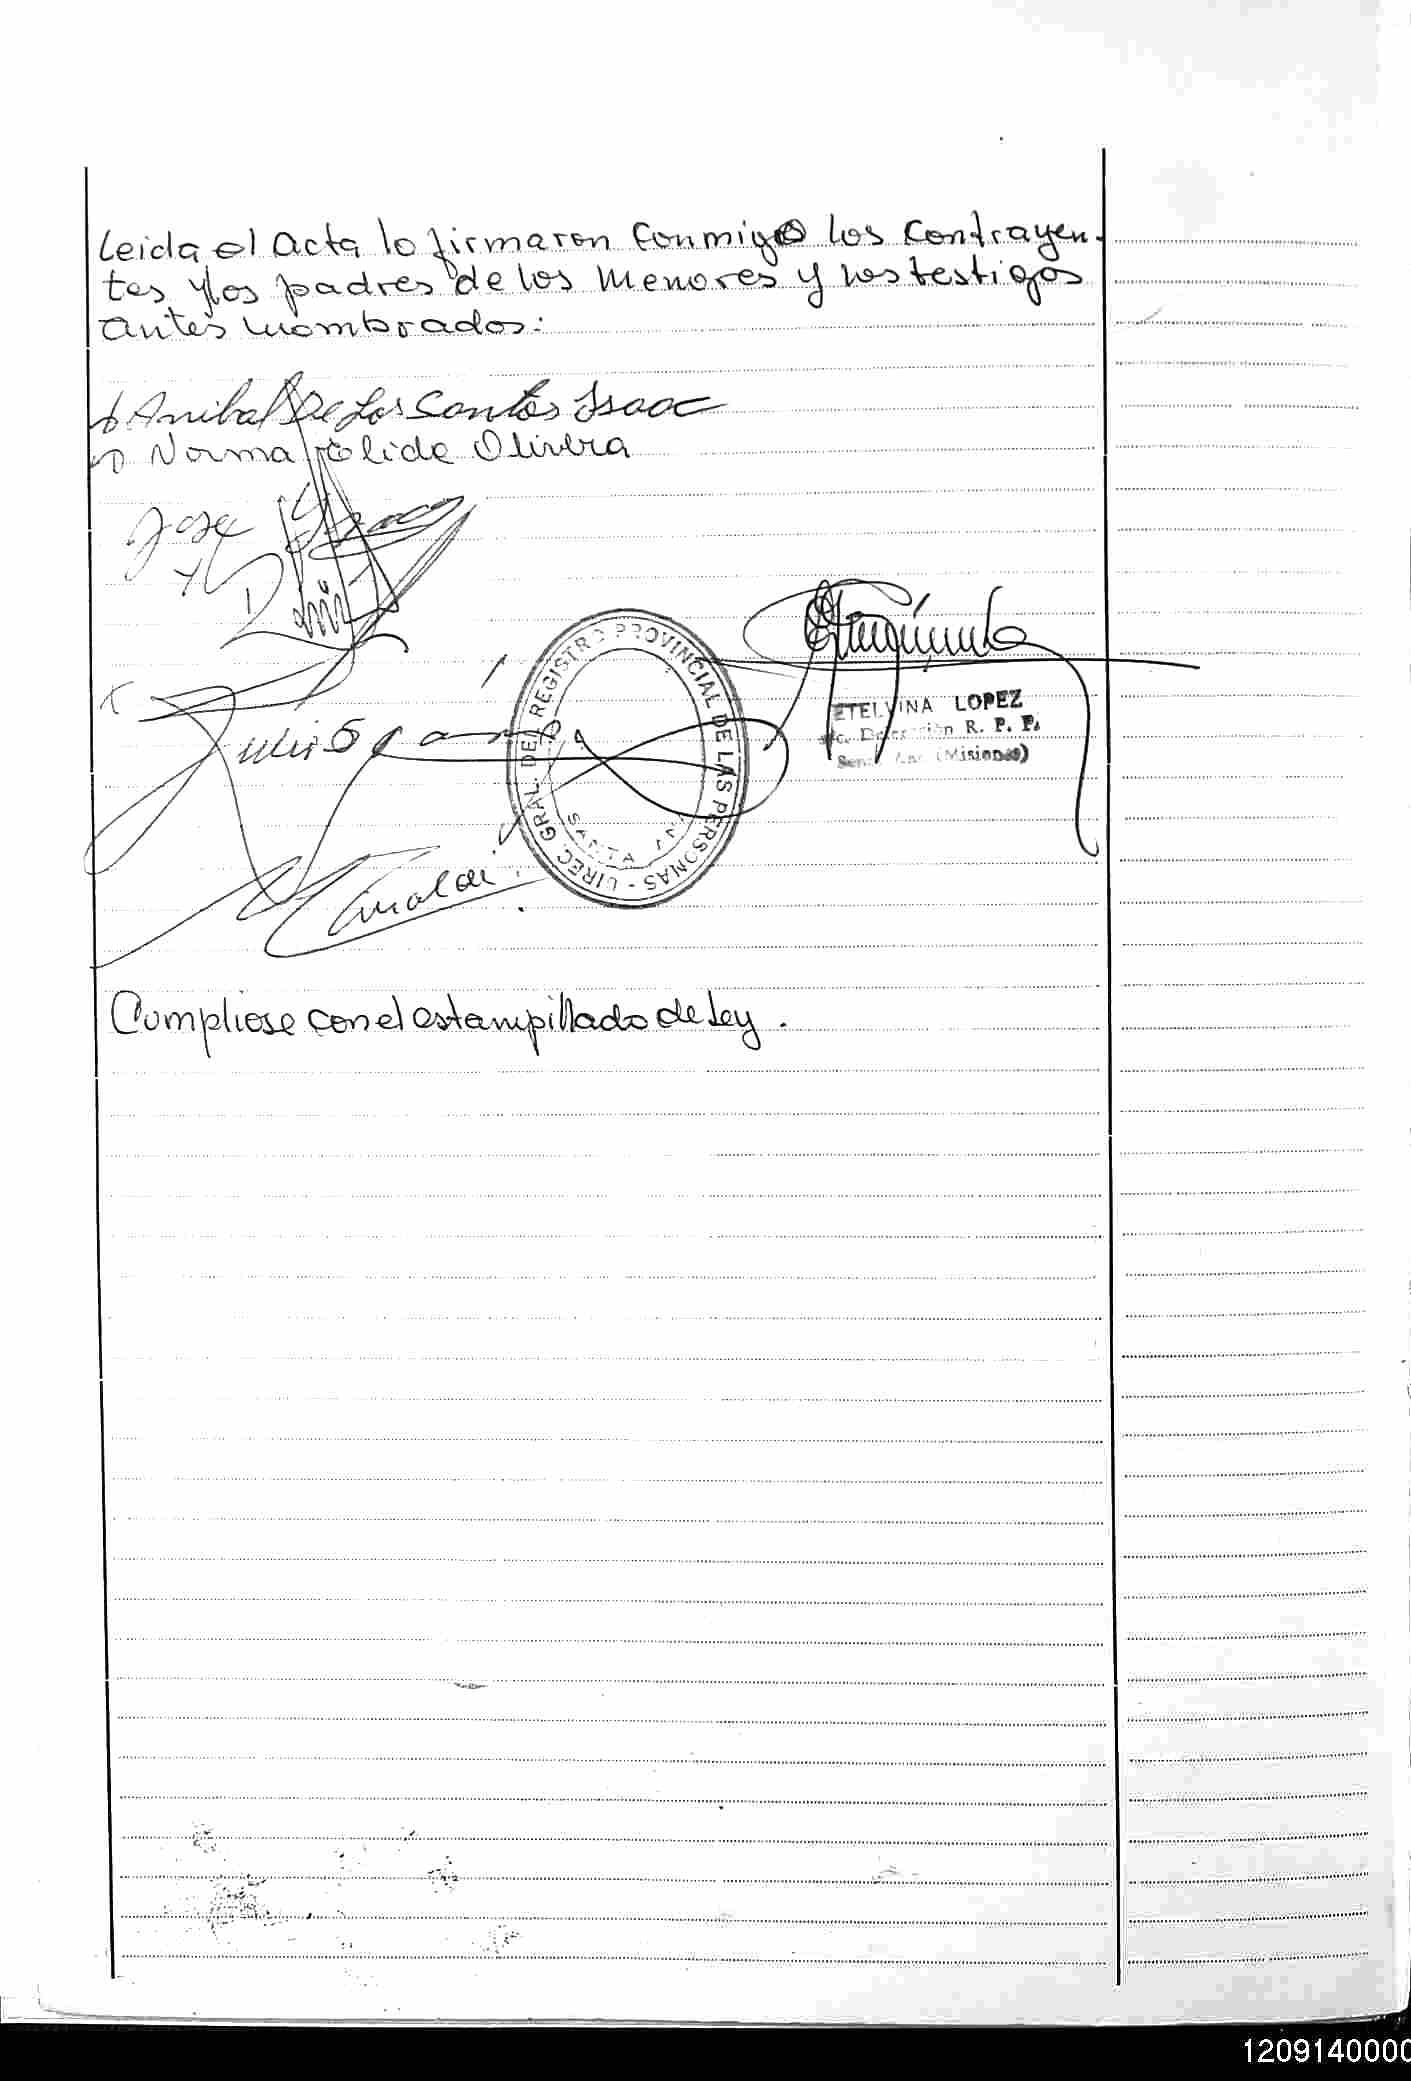 Leida el Acta lo firmaron Conmigo los Contrayen-
tes y los padres de los Menores y los testigos
antes nombrados:
Anibal De Los Santos Isaac
Norma Elide Olivera
Jose Isaac
DIREC. GRAL. DEL REGISTRO PROVINCIAL DE LAS PERSONAS -
SANTA ANA
ETELVINA LOPEZ
Delegación R. P. P.
Santa Ana (Misiones)
Cumpliose con el estampillado de Ley.
1209140000